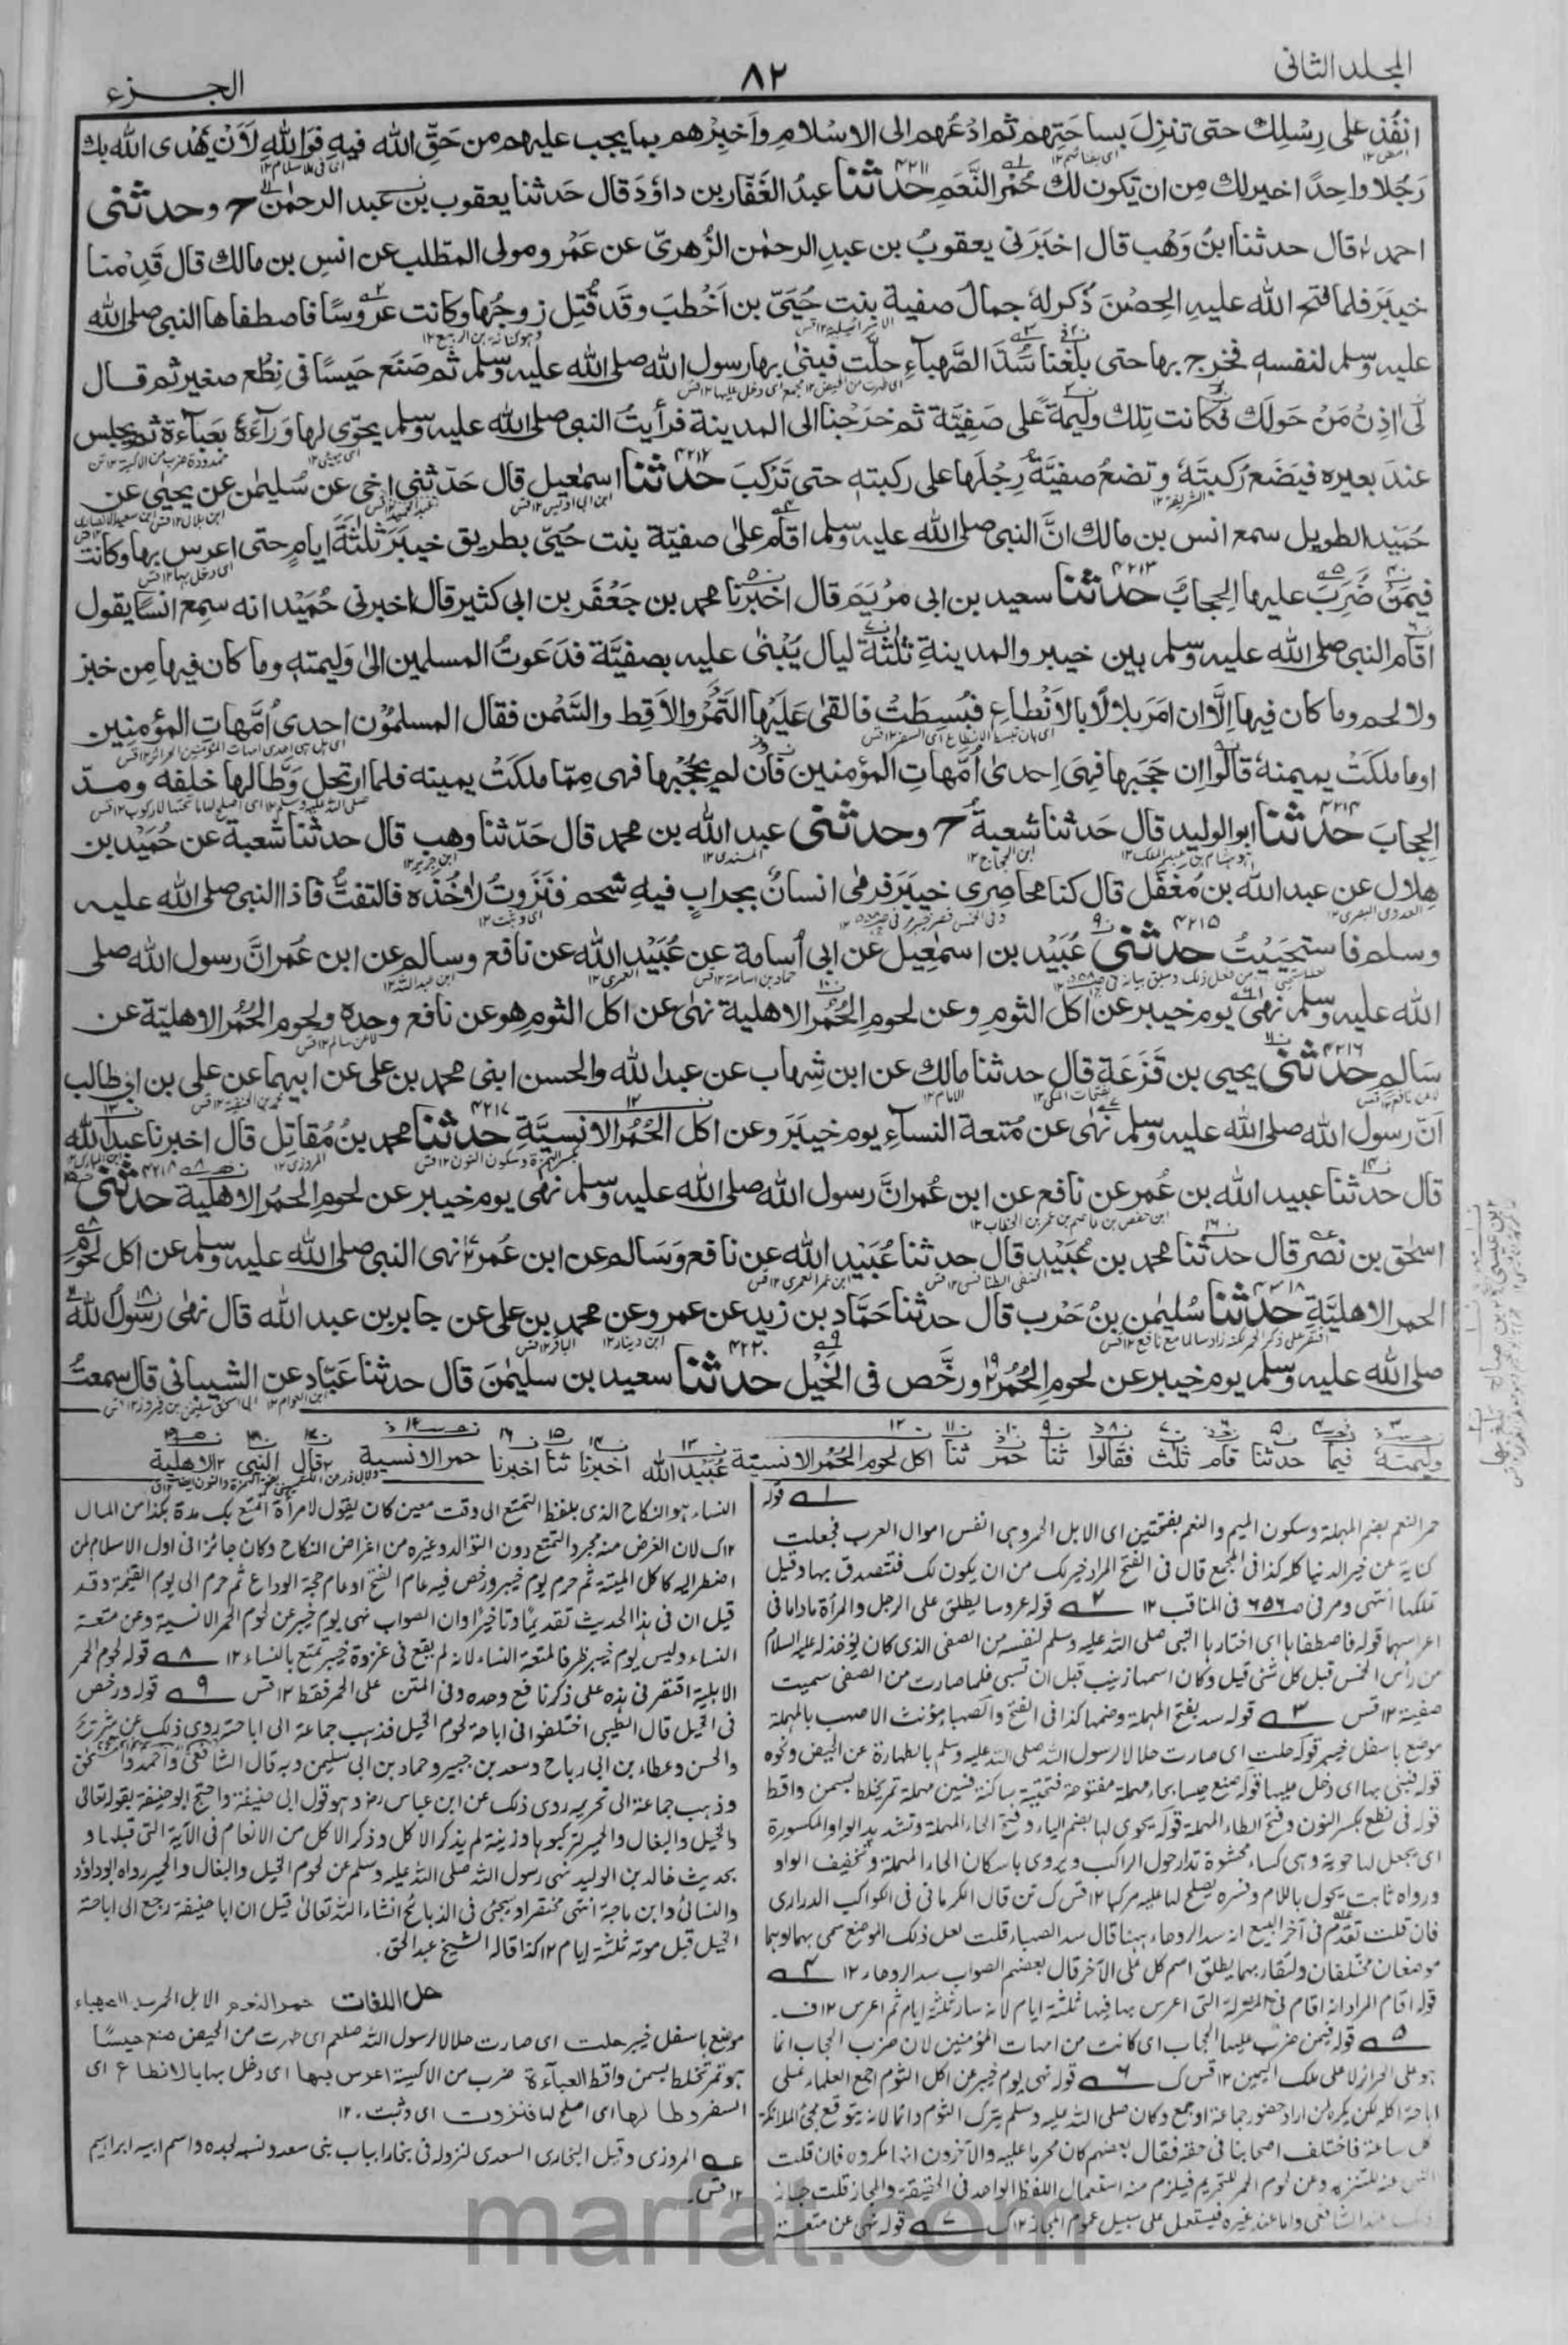 المجلد الثانی
٨٢
الجزء
انفُذ علی رِسْلِك حتی تنزِلَ بساحَتِهم ثم ادْعُهم الی الاسْلامِ واَخبِرْهم بما یجب علیهم من حَقِّ الله فیهِ فوَاللهِ لَاَنْ یَهْدی الله بك
رَجُلا واحِدًا خیر لك مِن ان یَکون لك حُمْر النَّعَم حدثنا عبدُ الغَفّار بن داوٗدَ قال حَدثنا یعقوب بن عبد الرحمٰن ح وحدثنی
احمد قال حدثنا ابنُ وَهْب قال اخبَرَنی یعقوبُ بن عبدِ الرحمٰن الزُّهریّ عن عَمْرو مولی المطّلب عن انسِ بن مالك قال قَدِمْنا
خیبَرَ فلما فتح الله علیهِ الحِصْنَ ذُكرلهٗ جمالُ صفیة بنتِ حُیَیّ بن اَخْطبَ وقَد قُتِل زوجُها وکانت عَروسًا فاصطفاها النبی صلی الله
علیه وسلم لنفسهٖ فخرج بها حتی بلَغنا سَدَّ الصَّهباءِ حلّت فبنٰی بها رسول الله صلی الله علیه وسلم ثم صَنَع حَیسًا فی نِطْع صغیر ثم قال
لی اٰذِنْ مَنْ حَولَك فکانت تِلك ولیمةً علٰی صَفِیَّة ثم خرَجْنا الی المدینة فرأیتُ النبی صلی الله علیه وسلم یحَوّی لها وَرَآءَهٗ بعَباَءة ثم یجلِس
عندَ بعیره فیَضَع رُکبتَهٗ وتضعُ صفیَّة رِجْلَها علی رکبتهٖ حتی تَرْکبَ حدثنا اسمٰعیل قال حَدّثنی اخی عن سُلیمٰن عن یحیٰی عن
حُمَیْد الطویل سمع انس بن مالك انَّ النبی صلی الله علیه وسلم اقام علٰی صفیّة بنت حُیَیّ بطریق خیبَرَ ثلٰثَةَ ایامٍ حتی اعرس بها وکانت
فیمَن ضُرِبَ علیها الحِجابُ حدثنا سعید بن ابی مرْیَم قال اخبرنا محمد بن جَعْفَر بن ابی کثیر قال اخبرنی حُمَیْد انه سمِع انسًا یقول
اقام النبی صلی الله علیه وسلم بین خیبر والمدینةِ ثلٰثَةَ لیال یُبْنٰی علیه بصفیَّة فدَعَوتُ المسلمین الیٰ وَلیمتهٖ وما کان فیها مِن خبز
ولا لحم وما کان فیها اِلَّا ان امَرَ بلالًا بالاَنْطاعِ فبُسِطَتْ فالقٰی عَلَیْها التَّمْرَ والاَقِط والسَّمْن فقال المسلموْن احدیٰ اُمَّهاتِ المؤمنین
اوما ملکتْ یمینهٗ قالوا اِن حَجَبها فهِیَ اِحدیٰ اُمَّهاتِ المؤمنین فان لم یحجُبْها فهی مِمّا ملکتْ یمینه فلما ارتحل وَطّا لها خلفه ومدّ
الحِجابَ حدثنا ابوالولید قال حَدثنا شعبةُ ح وحدثنی عبد الله بن محمد قال حَدّثنا وهب قال حدثنا شعبة عن حُمَیْد بن
هِلال عن عبد الله بن مُغفَّل قال کنا محاصِری خیبَرَ فرمٰی انسانٌ بجرابٍ فیهِ شَحم فنَزَوتُ لاٰخُذه فالتفتُّ فاذا النبی صلی الله علیه
وسلم فاستحیَیْتُ حدثنی عُبَیْد بن اسمٰعیل عن ابی اُسامة عن عُبَیْد الله عن نافع وسالم عن ابن عُمر انَّ رسول الله صلی
الله علیه وسلم نهٰی یوم خیبر عن اکل الثومِ وعن لحومِ الحُمُر الاهلیة نهٰی عن اکل الثومِ هو عن نافع وحده ولحوم الحُمُر الاهلیّة عن
سَالم حدثنی یحیی بن قَزَعَة قال حدثنا مالك عن ابن شِهاب عن عبد الله والحسن ابنی محمد بن علی عن ابیهما عن علی بن ابی طالب
اَنّ رسول الله صلی الله علیه وسلم نهٰی عن مُتعة النساءِ یوم خیبَرَ وعن اکل الحُمُر الانسیَّة حدثنا محمد بنُ مُقاتِل قال اخبرنا عبد الله
قال حدثنا عبید الله بن عُمر عن نافع عن ابن عُمر انَّ رسول الله صلی الله علیه وسلم نهی یوم خیبر عن لحومِ الحمُر الاهلیة حدثنی
اسحٰق بن نصر قال حدثنا محمد بن عُبَیْد قال حدثنا عُبَیْد الله عن نافع وَسَالم عن ابن عُمر نهی النبی صلی الله علیه وسلم عن اکل لحوم
الحمر الاهلیَّة حدثنا سُلیمٰن بنُ حَرْب قال حدثنا حَمَّاد بن زید عن عمرو عن محمد بن علی عن جابر بن عبد الله قال نهٰی رسولُ الله
صلی الله علیه وسلم یوم خیبر عن لحومِ الحُمُر ورخَّص فی الخَیْل حدثنا سعید بن سلیمٰنَ قال حدثنا عَبّاد عن الشیبانی قال سمعتُ
ولیمته فیما حدثنا قام ثلث فقالوا ثنا حمر ثنا اکل لحوم الحُمُر الانسیة عُبَیْد الله اخبرنا ثنا اخبرنا حمر الانسیة قال النبی الاهلیة
قوله
حمر النعم بضم المهملة وسکون المیم والنعم بفتحتین ای الابل الحمر وهی انفس اموال العرب فجعلت
کنایة عن خیر الدنیا کله کذا فی المجمع قال فی الفتح المراد خیر لك من ان یکون لك فتتصدق بها وقیل
تملکها انتهی ومر فی ص ٦٥٦ فی المناقب ١٢ ٢ قوله عروسا یطلق علی الرجل والمرأة ماداما فی
اعراسهما قوله فاصطفاها ای اختارها النبی صلی الله علیه وسلم لنفسه من الصفی الذی کان یؤخذ له علیه السلام
من رأس الخمس قبل کل شئ قیل وکان اسمها زینب قبل ان تسبی فلما صارت من الصفی سمیت
صفیة ١٢ قس ٣ قوله سد بفتح المهملة وضمها کذا فی الفتح والصهباء مؤنث الاصهب بالمهملة
موضع باسفل خیبر قوله حلت ای صارت حلالا لرسول الله صلی الله علیه وسلم بالطهارة عن الحیض ونحوه
قوله فبنی بها ای دخل علیها قوله صنع حیسا بحاء مهملة مفتوحة فتحتیة ساکنة فسین مهملة تمر یخلط بسمن واقط
قوله فی نطع بکسر النون وفتح الطاء المهملة قوله یحوی لها بضم الیاء وفتح الحاء المهملة وتشدید الواو المکسورة
ای یجعل لها حویة وهی کساء محشوة تدار حول الراکب ویروی باسکان الحاء المهملة وتخفیف الواو
ورواه ثابت یحول باللام وفسره یصلح لها علیه مرکبا ١٢ قس ک تن قال الکرمانی فی الکواکب الدراری
فان قلت تقدم فی آخر البیع انه سد الروحاء وههنا قال سد الصهباء قلت لعل ذلك الموضع سمی بهما او هما
موضعان مختلفان ولتقاربهما یطلق اسم کل علی الآخر قال بعضهم الصواب سد الروحاء ١٢ ٤
قوله اقام المراد انه اقام فی المنزلة التی اعرس بها فیها ثلثة ایام لا انه سار ثلثة ایام ثم اعرس ١٢ ف
٥ قوله فیمن ضرب علیها الحجاب ای کانت من امهات المؤمنین لان ضرب الحجاب انما
هو علی الحرائر لا علی ملك الیمین ١٢ قس ک ٦ قوله نهی یوم خیبر عن اکل الثوم اجمع العلماء علی
اباحة اکله لکن یکره لمن اراد حضور جماعة او جمع وکان صلی الله علیه وسلم یترک الثوم دائما لانه یتوقع مجئ الملائکة
کل ساعة فاختلف اصحابنا فی حقه فقال بعضهم کان محرما علیه والآخرون انها مکروه فان قلت
النهی عنه للتنزیه وعن لحوم الحمر للتحریم فیلزم منه استعمال اللفظ الواحد فی الحقیقة والمجاز قلت جاز
ذلك عند الشافعی واما عند غیره فیستعمل علی سبیل عموم المجاز ١٢ ک ٧ قوله نهی عن متعة
النساء هو النکاح الذی بلفظ التمتع الی وقت معین کان یقول لامرأة اتمتع بك مدة بکذا من المال
١٢ ک لان الغرض منه مجرد التمتع دون التوالد وغیره من اغراض النکاح وکان جائزا فی اول الاسلام لمن
اضطر الیه کاکل المیتة ثم حرم یوم خیبر ورخص فیه عام الفتح او عام حجة الوداع ثم حرم الی یوم القیمة وقد
قیل ان فی هذا الحدیث تقدیما وتاخیرا وان الصواب نهی یوم خیبر عن لحوم الحمر الانسیة وعن متعة
النساء ولیس یوم خیبر ظرفا لمتعة النساء لانه لم یقع فی غزوة خیبر تمتع بالنساء ١٢ ٨ قوله لحوم الحمر
الاهلیة اقتصر فی هذه علی ذکر نافع وحده وفی المتن علی الحمر فقط ١٢ قس ٩ قوله ورخص
فی الخیل قال الطیبی اختلفوا فی اباحة لحوم الخیل فذهب جماعة الی اباحته روی ذلك عن شریح
والحسن وعطاء بن ابی رباح وسعد بن جبیر وحماد بن ابی سلیمن وبه قال الشافعی واحمد واسحق
وذهب جماعة الی تحریمه روی ذلك عن ابن عباس رض وهو قول ابی حنیفة واحتج ابو حنیفة بقوله تعالی
والخیل والبغال والحمیر لترکبوها وزینة لم یذکر الاکل وذکر الاکل من الانعام فی الآیة التی قبلها و
بحدیث خالد بن الولید نهی رسول الله صلی الله علیه وسلم عن لحوم الخیل والبغال والحمیر رواه ابوداؤد
والنسائی وابن ماجة انتهی مختصرا وسیجئ فی الذبائح انشاء الله تعالیٰ قیل ان ابا حنیفة رجع الی اباحة
الخیل قبل موته ثلثة ایام ١٢ کذا قاله الشیخ عبد الحق.
حل اللغات حمر النعم الابل الحمر سد الصهباء
موضع باسفل خیبر حلت ای صارت حلالا لرسول الله صلعم ای طهرت من الحیض صنع حیسًا
هو تمر تخلط بسمن واقط العبآءة ضرب من الاکسیة اعرس بها ای دخل بها بالانطاع ای
السفر وطا لها ای اصلح لها فنزوت ای وثبت ١٢
عه المروزی وقیل البخاری السعدی لنزوله فی بخارا بباب بنی سعد ونسبه لجده واسم ابیه ابراهیم
١٢ قس
marfat.com